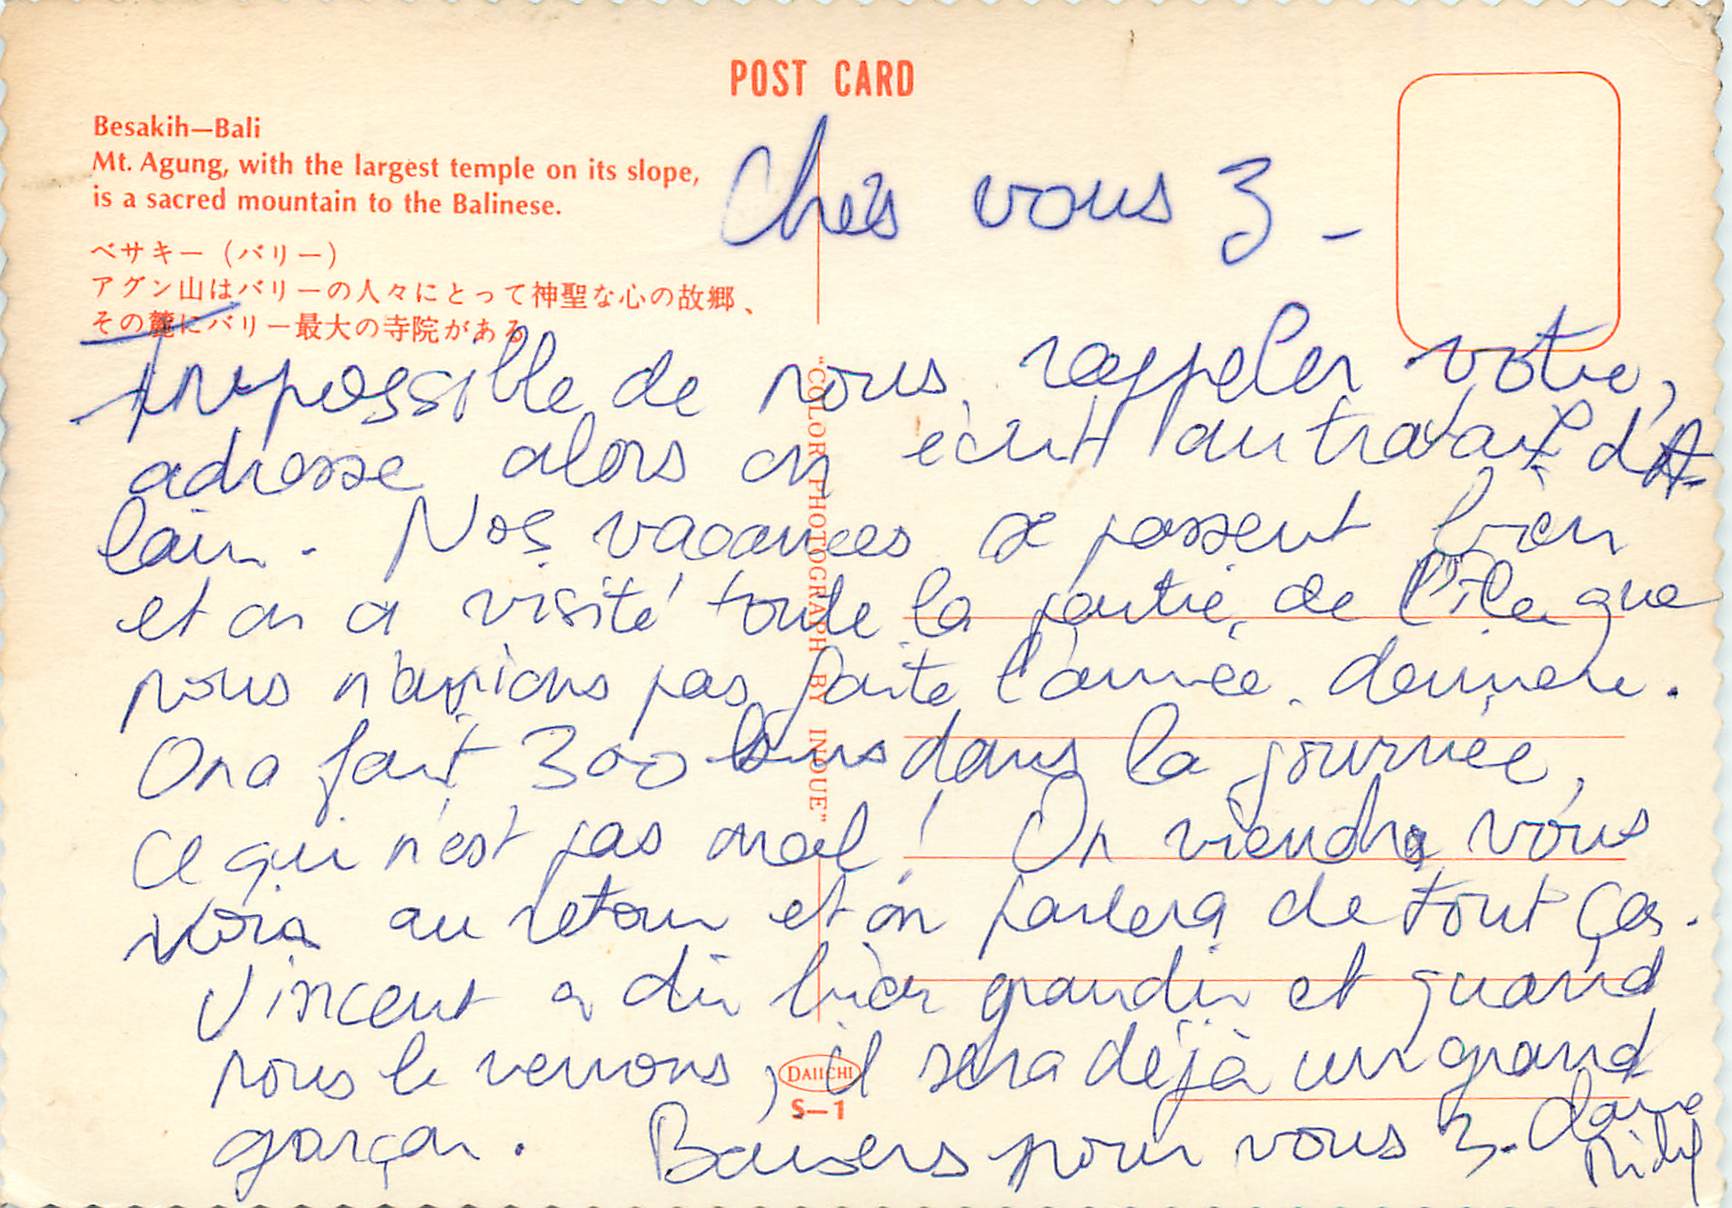 POST CARD
Besakih—Bali
Mt. Agung, with the largest temple on its slope,
is a sacred mountain to the Balinese.
ベサキー（バリー）
アグン山はバリーの人々にとって神聖な心の故郷、
その麓にバリー最大の寺院がある
Chers vous 3 -
Impossible de nous rappeler votre
adresse alors on écrit au travail d'A-
lain. Nos vacances se passent bien
et on a visité toute la partie de l'île que
nous n'avions pas faite l'année dernière.
On a fait 300 kms dans la journée,
ce qui n'est pas mal ! On viendra vous
voir au retour et on parlera de tout ça.
Vincent a dû bien grandir et quand
nous le verrons, il sera déjà un grand
garçon. Baisers pour vous 3.
"COLOR PHOTOGRAPH BY INOUE"
DAIICHI
S—1